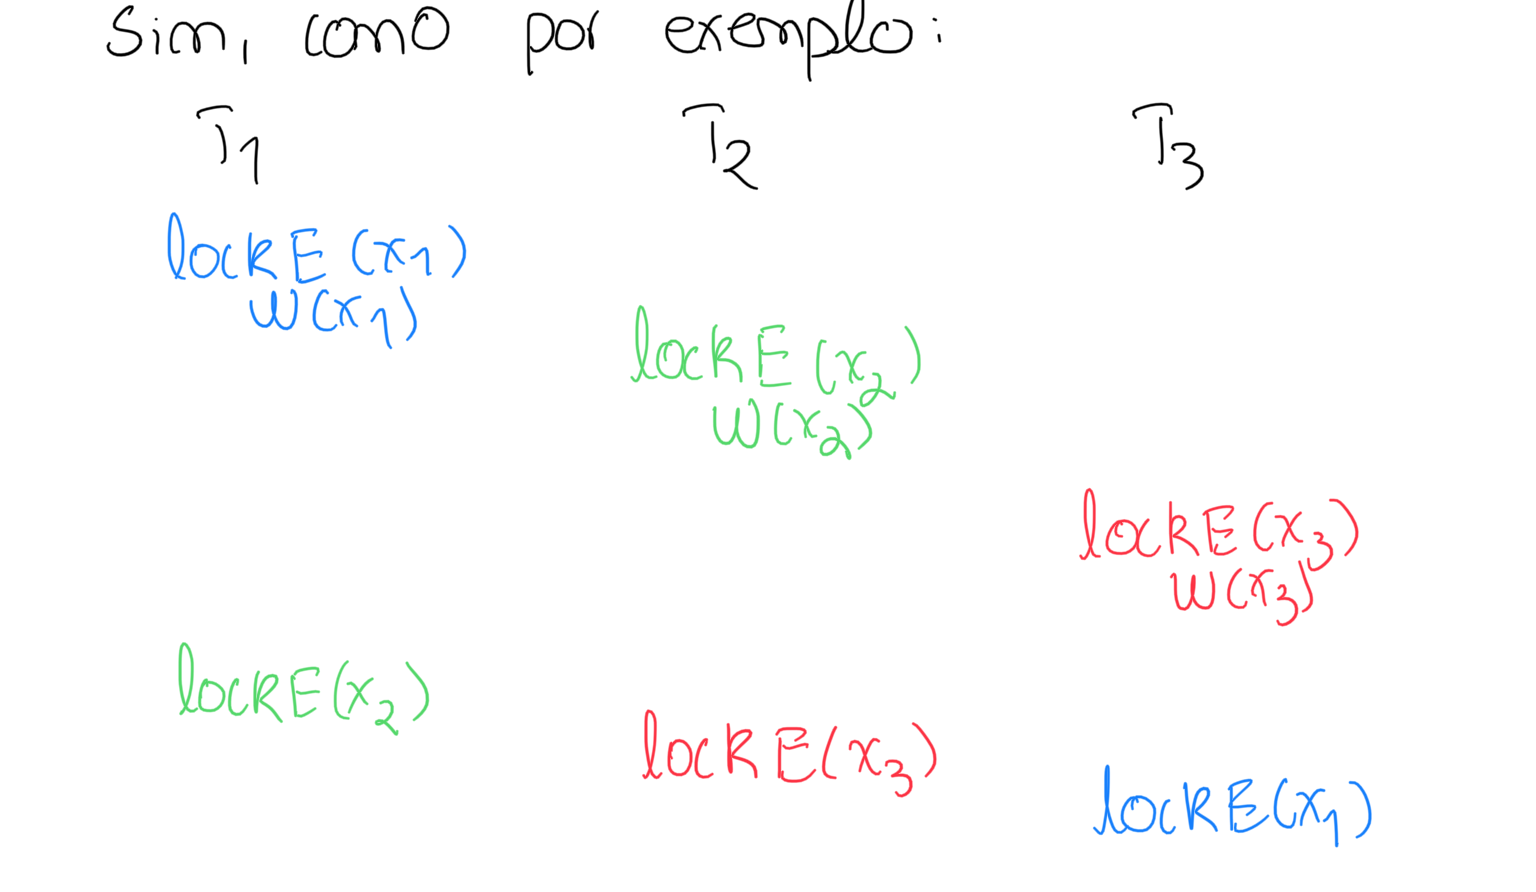 Sim, como por exemplo:
T1 T2 T3
lockE(x1)
W(x1)
lockE(x2)
W(x2)
lockE(x3)
W(x3)
lockE(x2)
lockE(x3)
lockE(x1)